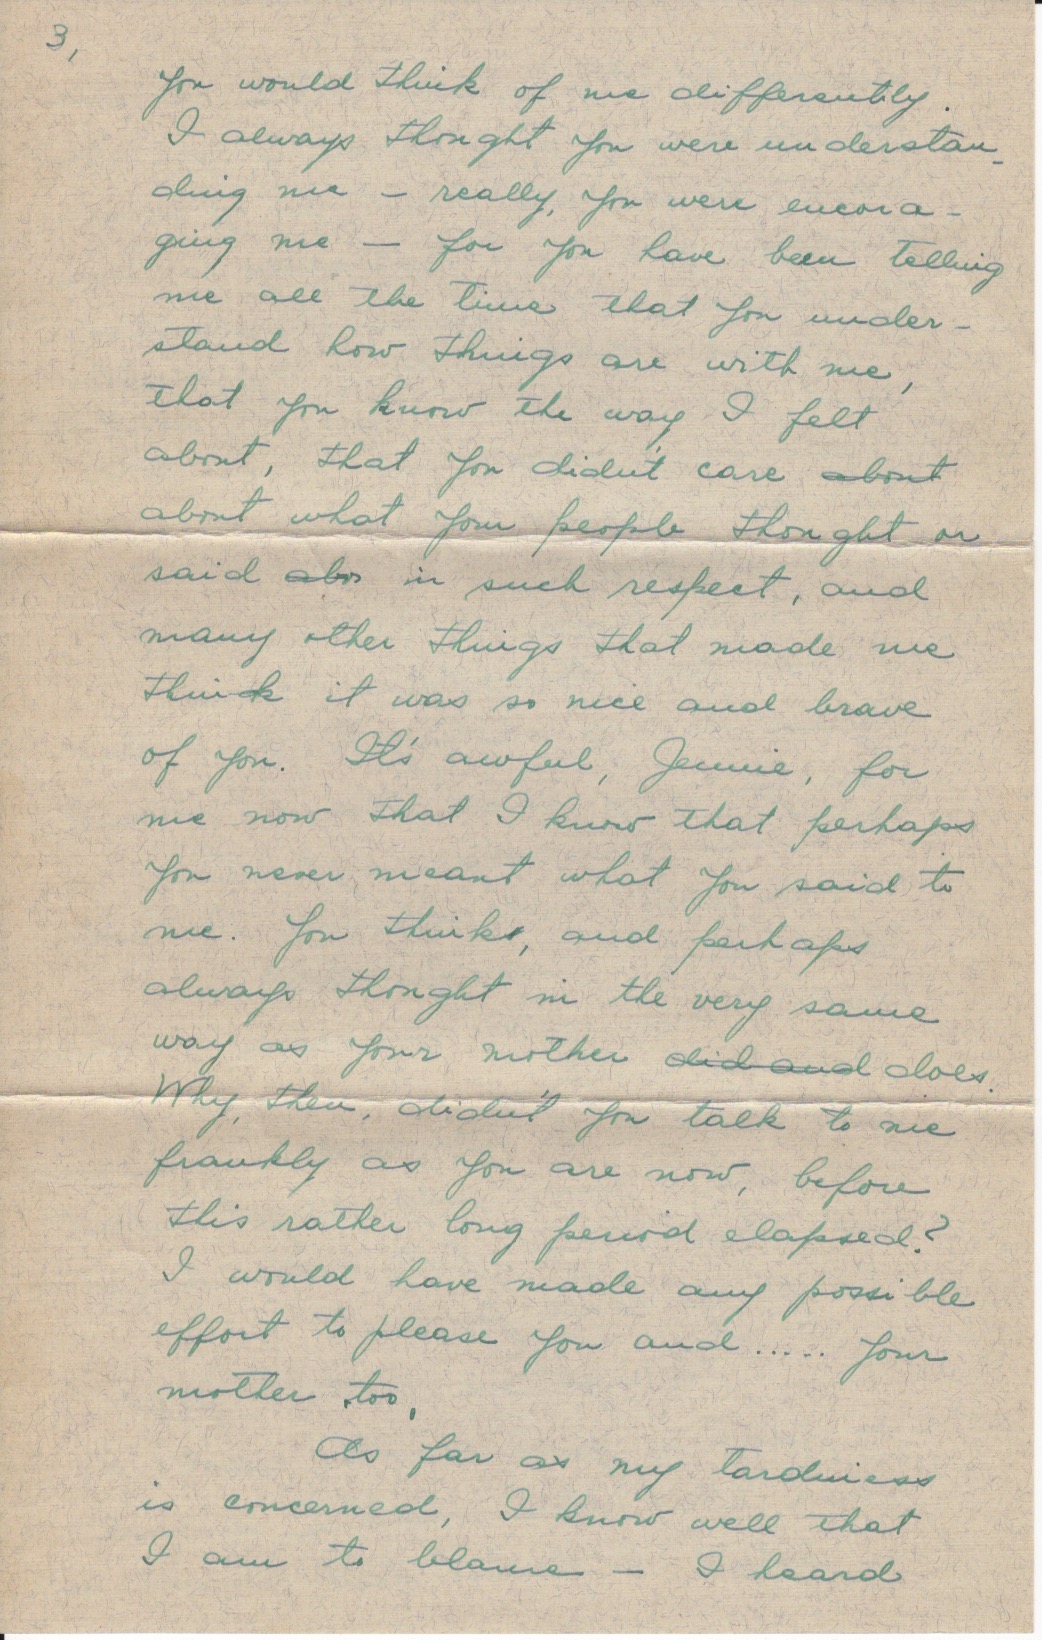 3,
you would think of me differentily.
I always thought you were understan-
ding me — really, you were encora-
ging me — for you have been telling
me all the time that you under-
stand how things are with me,
that you know the way I felt
about, that you didn't care about
about what your people thought or
said abo in such respect, and
many other things that made me
think it was so nice and brave
of you. It's awful, Jennie, for
me now that I know that perhaps
you never meant what you said to
me. You think, and perhaps
always thought in the very same
way as your mother did and does.
Why, then, didn't you talk to me
frankly as you are now, before
this rather long period elapsed?
I would have made any possible
effort to please you and ..... your
mother too.
As far as my tardiness
is concerned, I know well that
I am to blame — I heard